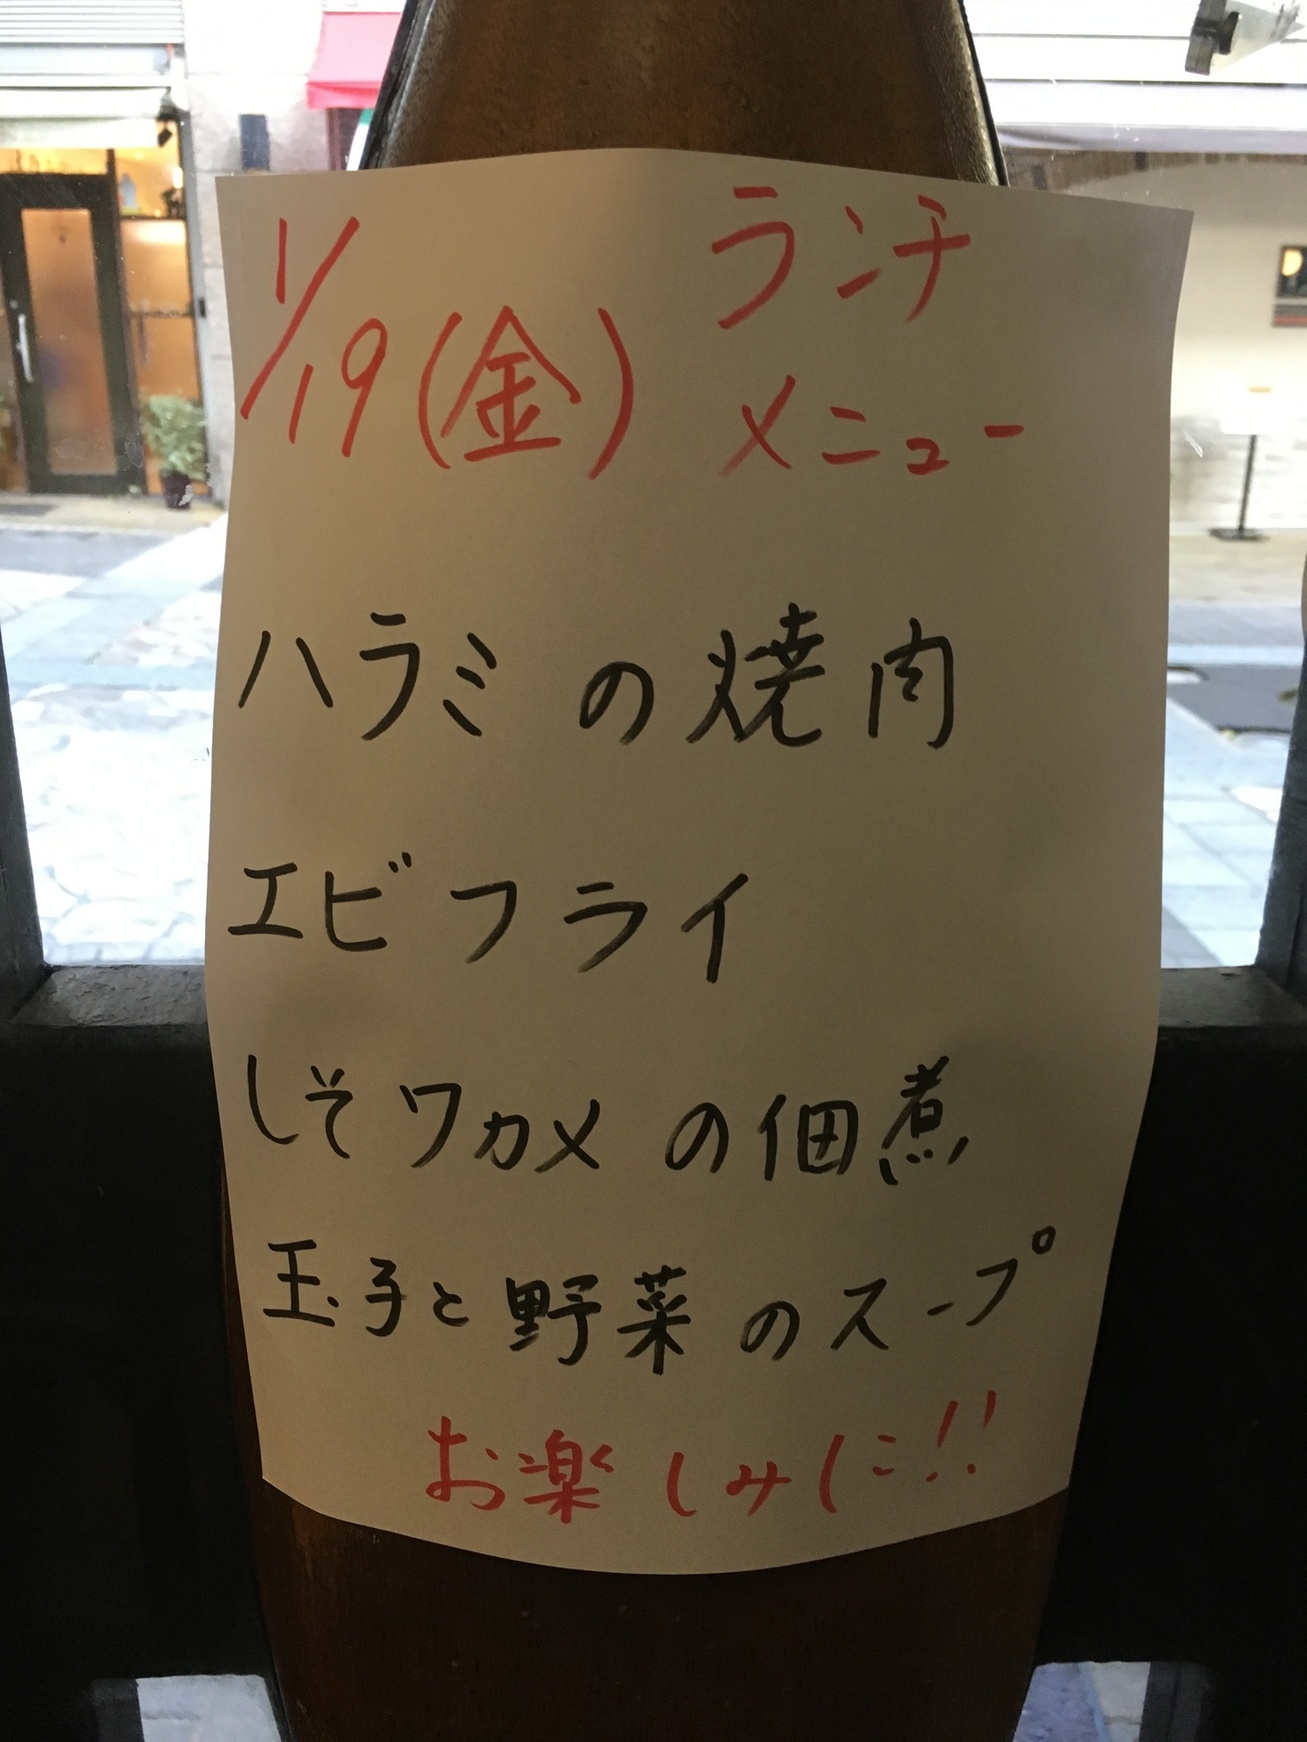 1/19(金) ランチ
メニュー
ハラミの焼肉
エビフライ
しそワカメの佃煮
玉子と野菜のスープ
お楽しみに!!